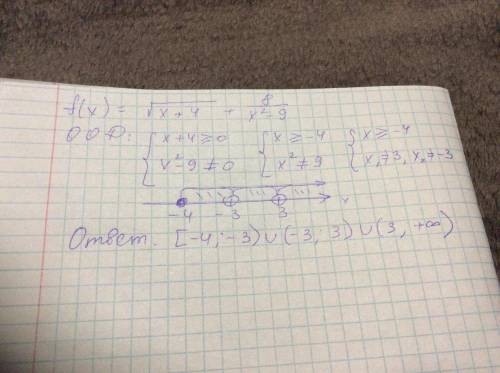 f(x) = √(x+4) + 8/(x²-9)
ООФ: { x+4≥0 { x≥-4 { x≥-4
x²-9≠0 x²≠9 x₁≠3, x₂≠-3
-4 -3 3 x
Ответ. [-4;-3)∪(-3; 3)∪(3, +∞)